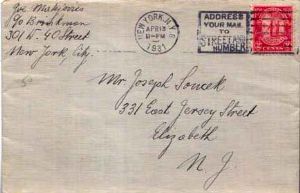 Joe
c/o Brockman
301 W. 40 Street
New York, City
NEW YORK, N.Y.
APR 13
PM
1931
ADDRESS
YOUR MAIL
TO
STREET AND
NUMBER
2 CENTS 2
Mr. Joseph Soucek
331 East Jersey Street
Elizabeth
N J